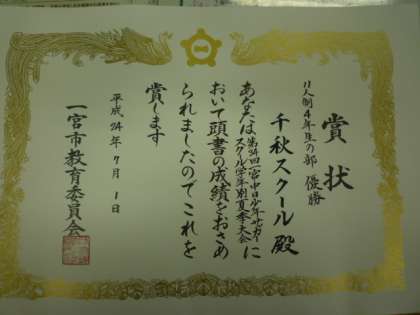 賞状
11人制4年生の部 優勝
千秋スクール 殿
あなたは第24回一宮中日少年サッカー
スクール学年別夏季大会に
おいて頭書の成績をおさめ
られましたのでこれを
賞します
平成24年7月1日
一宮市教育委員会